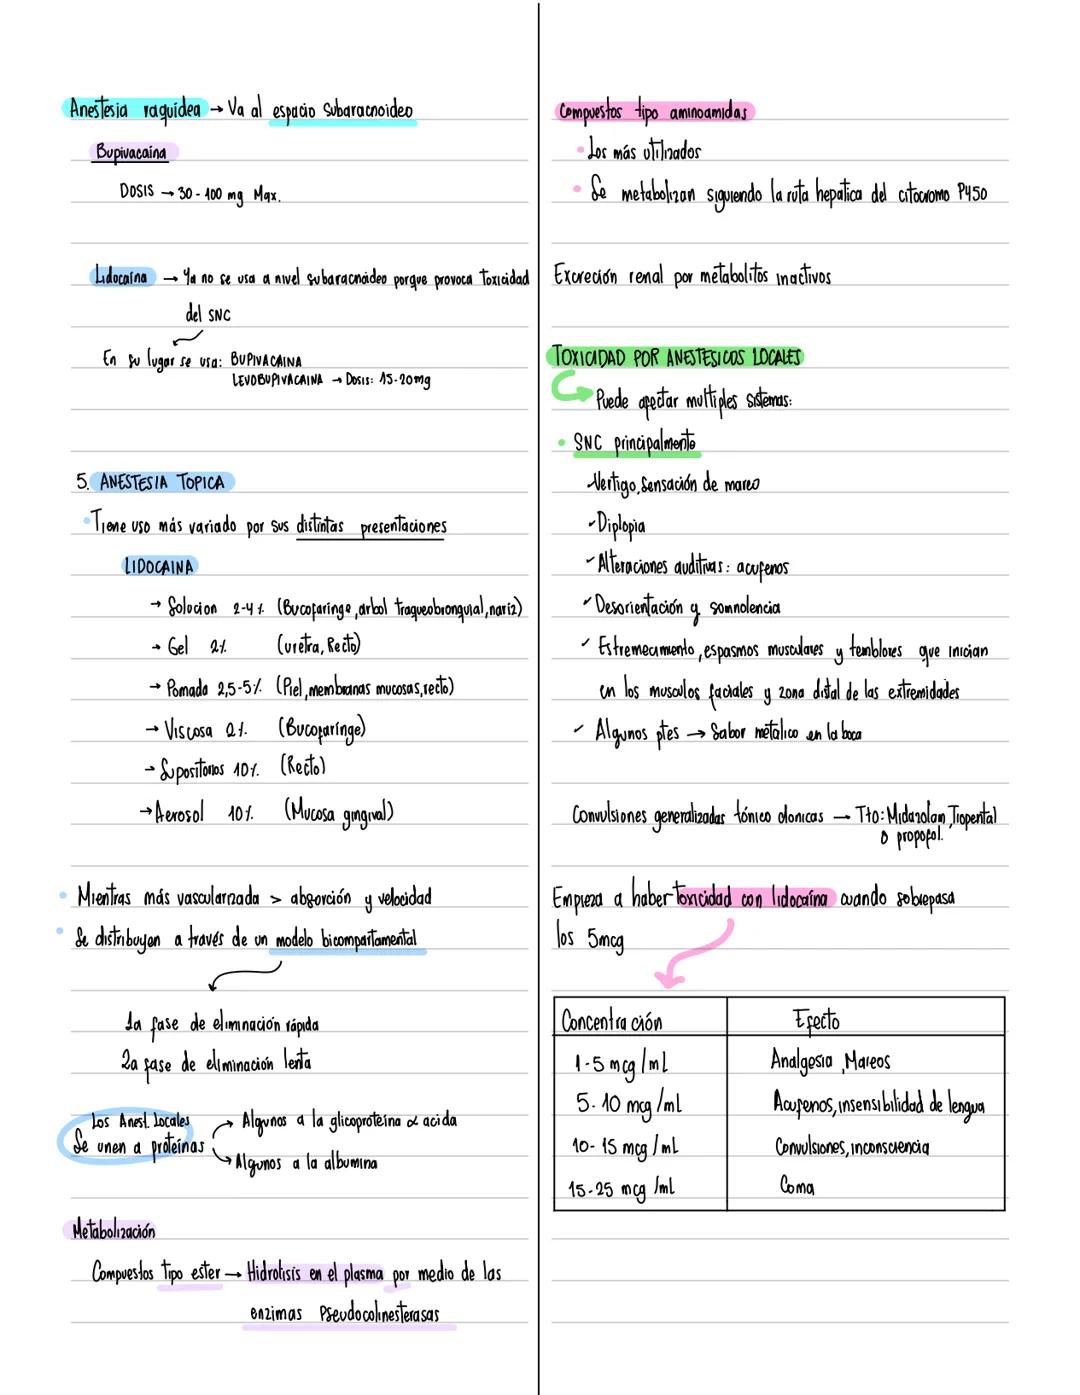 Anestesia raquídea → Va al espacio subaracnoideo
Bupivacaína
DOSIS → 30-100 mg Max.
Lidocaína → Ya no se usa a nivel subaracnoideo porque provoca Toxicidad
del SNC
En su lugar se usa: BUPIVACAINA
LEVOBUPIVACAINA → Dosis: 15-20mg
5. ANESTESIA TOPICA
• Tiene uso más variado por sus distintas presentaciones
LIDOCAINA
→ Solucion 2-4% (Bucofaringe, arbol traqueobronquial, nariz)
→ Gel 2% (uretra, Recto)
→ Pomada 2,5-5% (Piel, membranas mucosas, recto)
→ Viscosa 2% (Bucofaringe)
→ Supositorios 10% (Recto)
→ Aerosol 10% (Mucosa gingival)
• Mientras más vascularizada > absorción y velocidad
• Se distribuyen a través de un modelo bicompartamental
1a fase de eliminación rápida
2a fase de eliminación lenta
Los Anest. Locales
Se unen a proteínas → Algunos a la glicoproteína α acida
→ Algunos a la albumina
Metabolización
Compuestos tipo ester → Hidrolisis en el plasma por medio de las
enzimas Pseudocolinesterasas
Compuestos tipo aminoamidas
• Los más utilizados
• Se metabolizan siguiendo la ruta hepatica del citocromo P450
Excreción renal por metabolitos inactivos
TOXICIDAD POR ANESTESICOS LOCALES
Puede afectar multiples sistemas:
• SNC principalmente
✓ Vertigo, sensación de mareo
✓ Diplopia
✓ Alteraciones auditivas: acufenos
✓ Desorientación y somnolencia
✓ Estremecimiento, espasmos musculares y temblores que inician
en los musculos faciales y zona distal de las extremidades
✓ Algunos ptes → Sabor metálico en la boca
Convulsiones generalizadas tónico clonicas → Tto: Midazolam, Tiopental
o propofol.
Empieza a haber toxicidad con lidocaína cuando sobrepasa
los 5mcg
Concentración Efecto
1-5 mcg/ml Analgesia, Mareos
5-10 mcg/ml Acufenos, insensibilidad de lengua
10-15 mcg/ml Convulsiones, inconsciencia
15-25 mcg/ml Coma